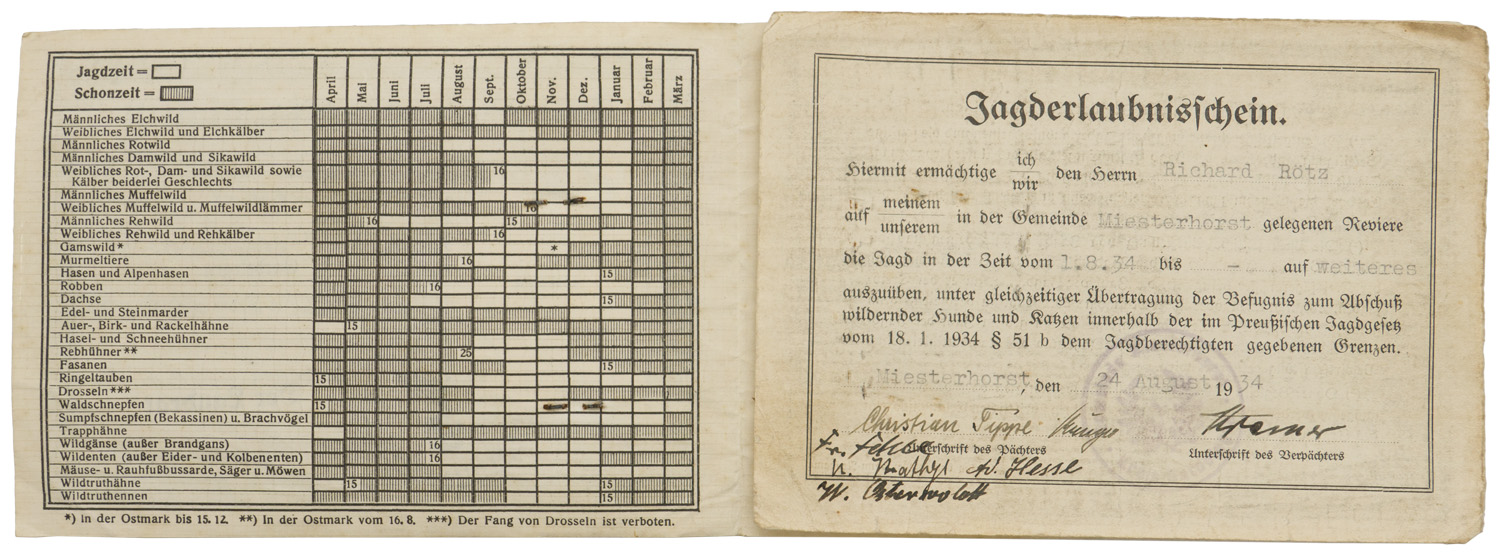 Jagdzeit =
Schonzeit =
April Mai Juni Juli August Sept. Oktober Nov. Dez. Januar Februar März
Männliches Elchwild
Weibliches Elchwild und Elchkälber
Männliches Rotwild
Männliches Damwild und Sikawild
Weibliches Rot-, Dam- und Sikawild sowie 16
Kälber beiderlei Geschlechts
Männliches Muffelwild
Weibliches Muffelwild u. Muffelwildlämmer 16
Männliches Rehwild 16 15
Weibliches Rehwild und Rehkälber 16
Gamswild * *
Murmeltiere 16
Hasen und Alpenhasen 15
Robben 16
Dachse 15
Edel- und Steinmarder
Auer-, Birk- und Rackelhähne 15
Hasel- und Schneehühner
Rebhühner ** 25
Fasanen 15
Ringeltauben 15
Drosseln ***
Waldschnepfen 15
Sumpfschnepfen (Bekassinen) u. Brachvögel
Trapphähne
Wildgänse (außer Brandgans) 16
Wildenten (außer Eider- und Kolbenenten) 16
Mäuse- u. Rauhfußbussarde, Säger u. Möwen
Wildtruthähne 15 15
Wildtruthennen 15
*) In der Ostmark bis 15. 12. **) In der Ostmark vom 16. 8. ***) Der Fang von Drosseln ist verboten.
Jagderlaubnisschein.
Hiermit ermächtige ich/wir den Herrn Richard Rötz
auf meinem/unserem in der Gemeinde Miesterhorst gelegenen Reviere
die Jagd in der Zeit vom 1.8.34 bis - auf weiteres
auszuüben, unter gleichzeitiger Übertragung der Befugnis zum Abschuß
wildernder Hunde und Katzen innerhalb der im Preußischen Jagdgesetz
vom 18. 1. 1934 § 51 b dem Jagdberechtigten gegebenen Grenzen.
Miesterhorst, den 24 August 1934
Christian Tippe
Unterschrift des Pächters
Unterschrift des Verpächters
Hesse